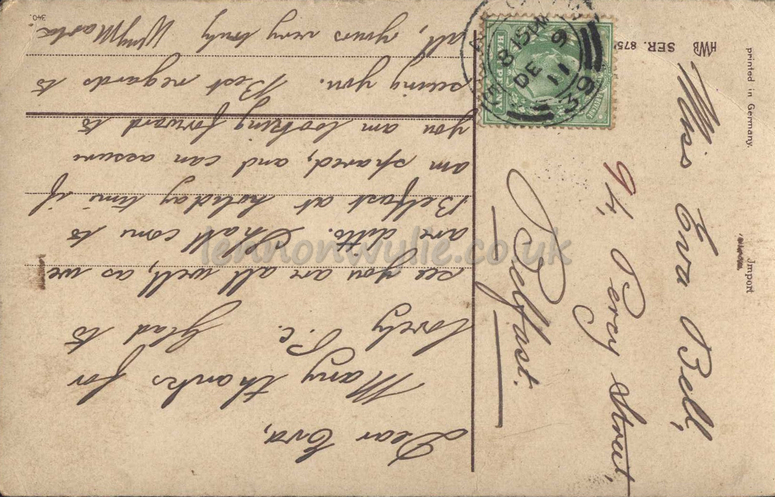 Dear Eva,
Many thanks for
lovely P.c. Glad to
see you are all well, as we
are ditto. Shall come to
Belfast at holiday time if
am spared, and can assure
you am looking forward to
seeing you. Best regards to
all, yours very truly
Miss Eva Bell,
94, Percy Street,
Belfast.
HWB SER. 875
printed in Germany.
Import
BELFAST
8.15 PM
DE 9
11
39
HALF PENNY
lennonwylie.co.uk